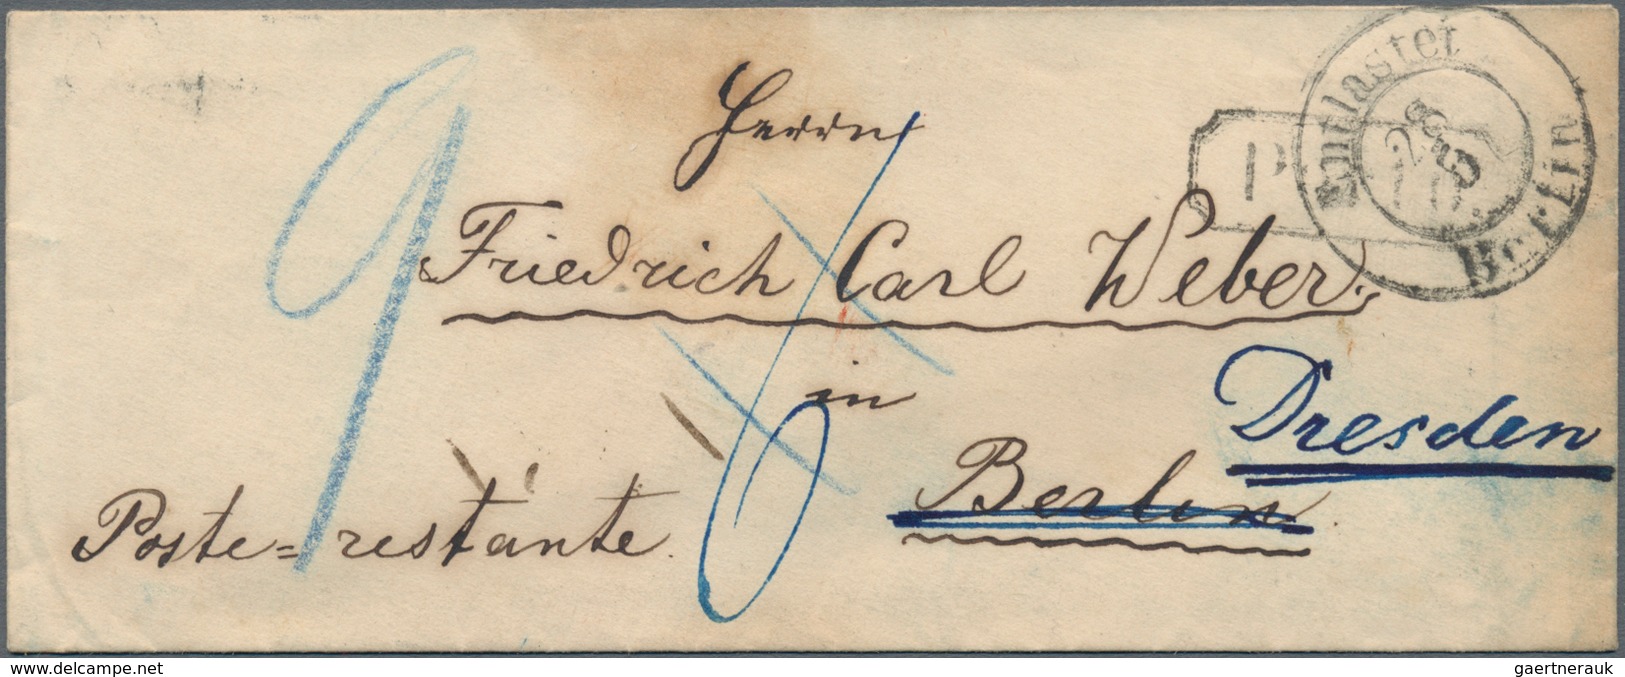 Herrn
Friedrich Carl Weber
in
Berlin
Dresden
Poste=restante
9
P
Entlastet
28
10.
Berlin
www.delcampe.net
gaertnerauk